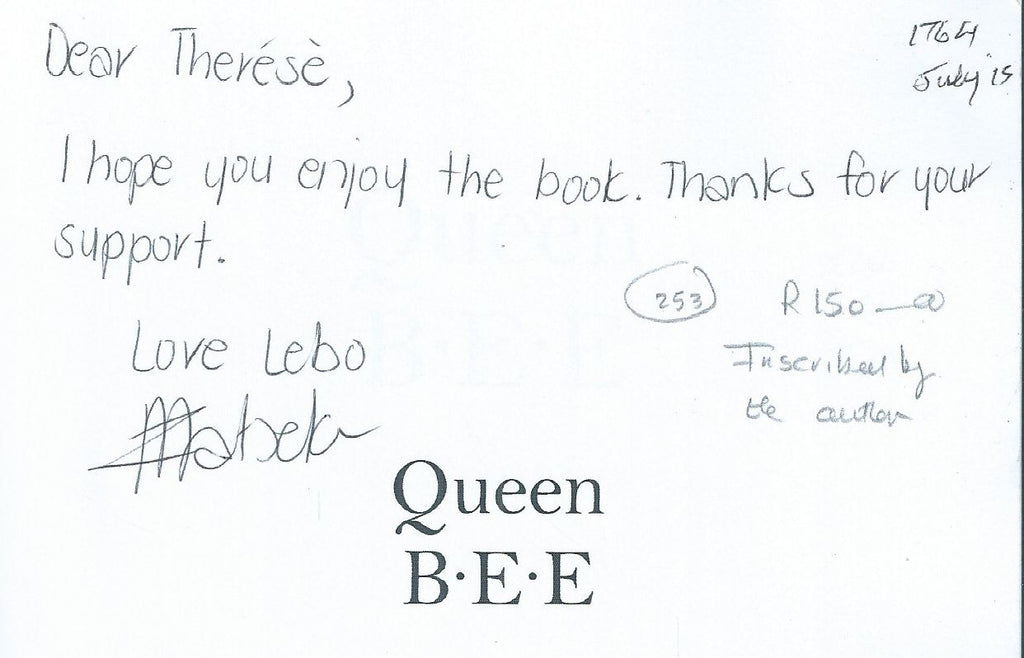 Dear Therésè,
1764
July 15
I hope you enjoy the book. Thanks for your
support.
253
R150—00
Inscribed by
the author
Love Lebo
Queen
B·E·E